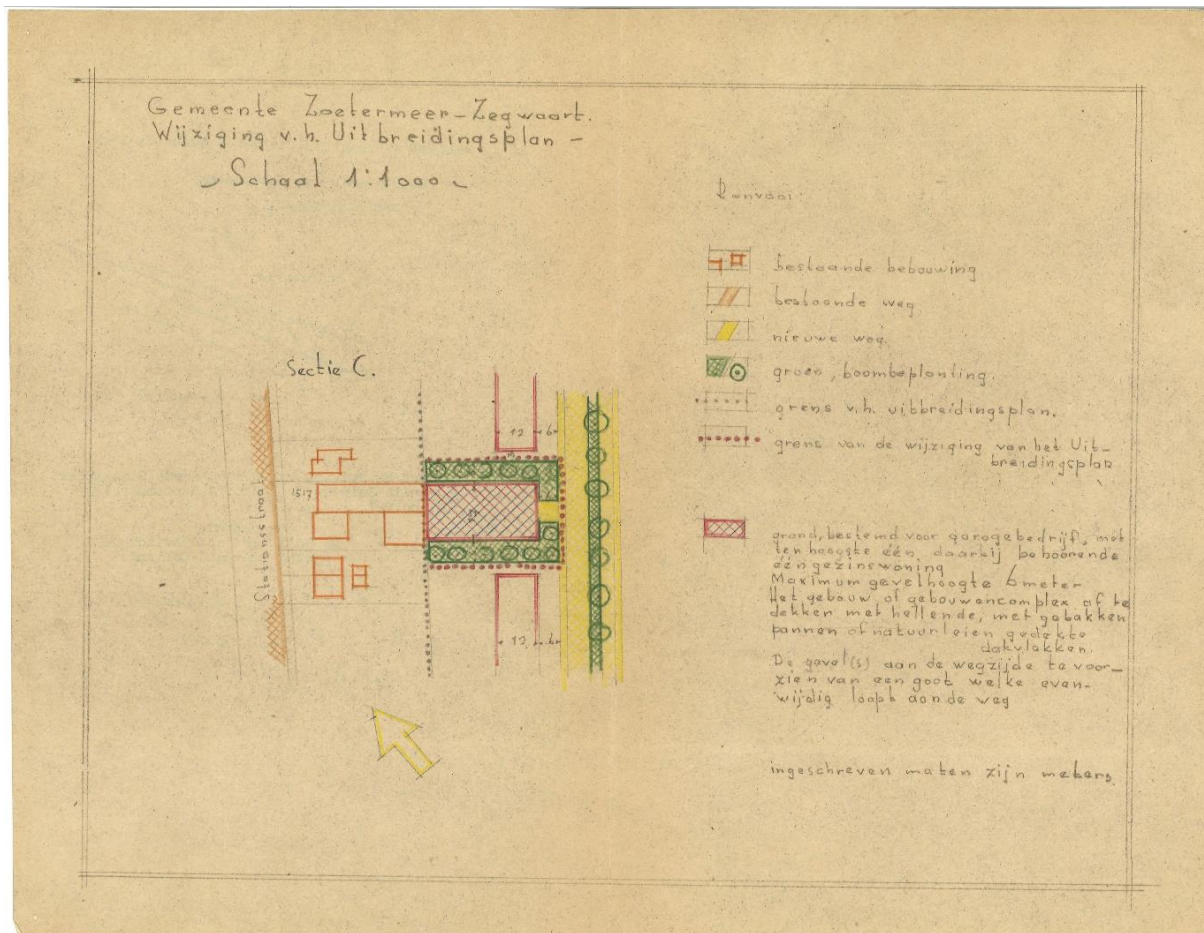 Gemeente Zoetermeer-Zegwaart.
Wijziging v.h. Uitbreidingsplan -
Schaal 1:1000
Renvooi
bestaande bebouwing
bestaande weg
nieuwe weg.
groen, boombeplanting.
grens v.h. uitbreidingsplan.
grens van de wijziging van het Uit-
breidingsplan
grond, bestemd voor garagebedrijf, met
ten hoogste één daarbij behoorende
ééngezinswoning
Maximum gevelhoogte 6 meter
Het gebouw of gebouwencomplex af te
dekken met hellende, met gebakken
pannen of natuurleien gedekte
dakvlakken.
De gevel(s) aan de wegzijde te voor-
zien van een goot welke even-
wijdig loopt aan de weg
ingeschreven maten zijn meters.
Sectie C.
Stationsstraat
1517
12 6
12 6